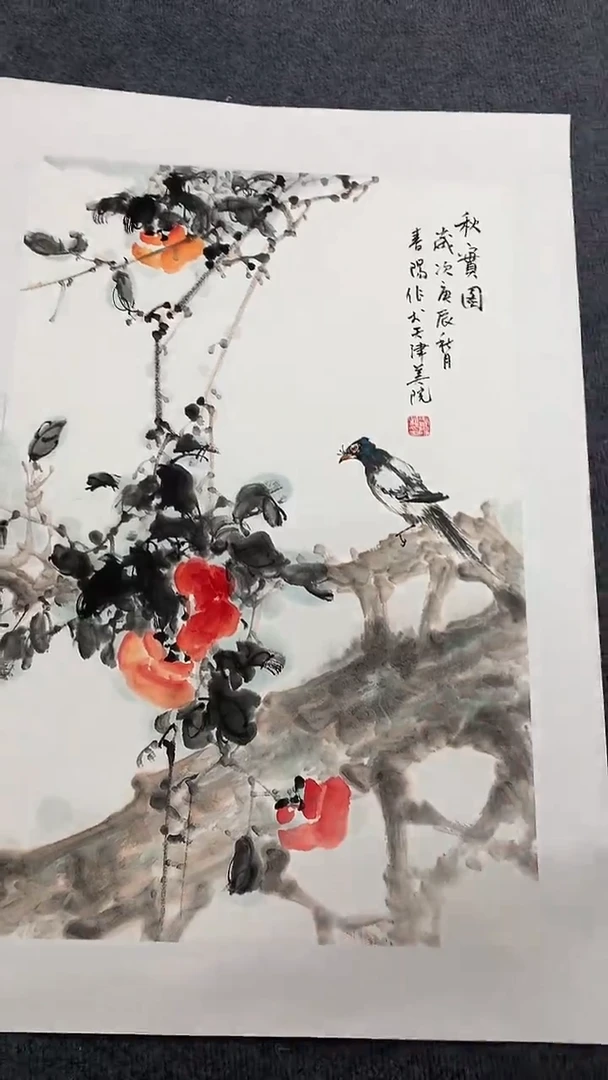 秋實图
歲次庚辰秋月
春陽作於天津美院